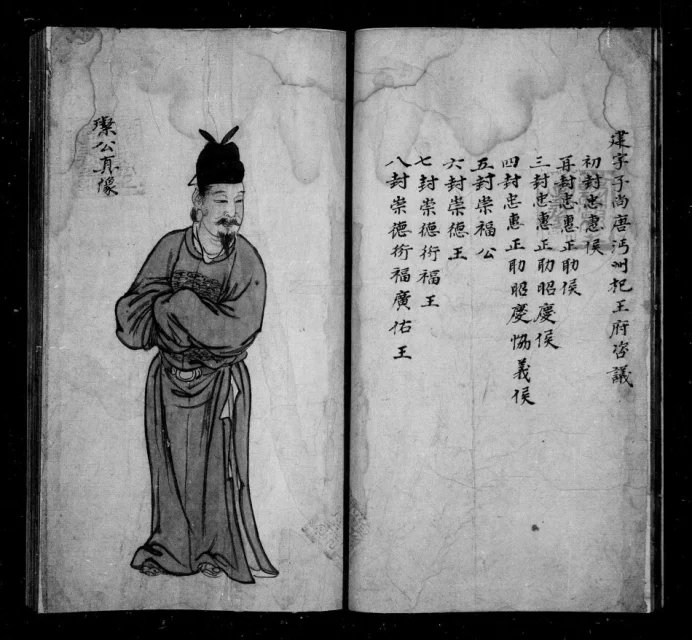 建字子尚唐沔州杞王府咨議
初封忠惠侯
再封忠惠正助侯
三封忠惠正助昭慶侯
四封忠惠正助昭慶協義侯
五封崇福公
六封崇德王
七封崇德衍福王
八封崇德衍福廣佑王
璨公真像